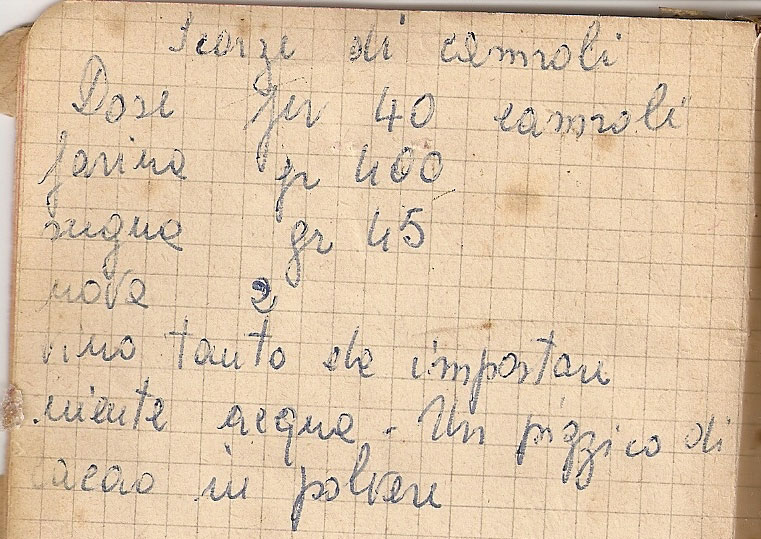 Scorze di cannoli
Dose per 40 cannoli
farina gr 400
sugna gr 45
uova 2
vino tanto da impastare
niente acqua - Un pizzico di
cacao in polvere